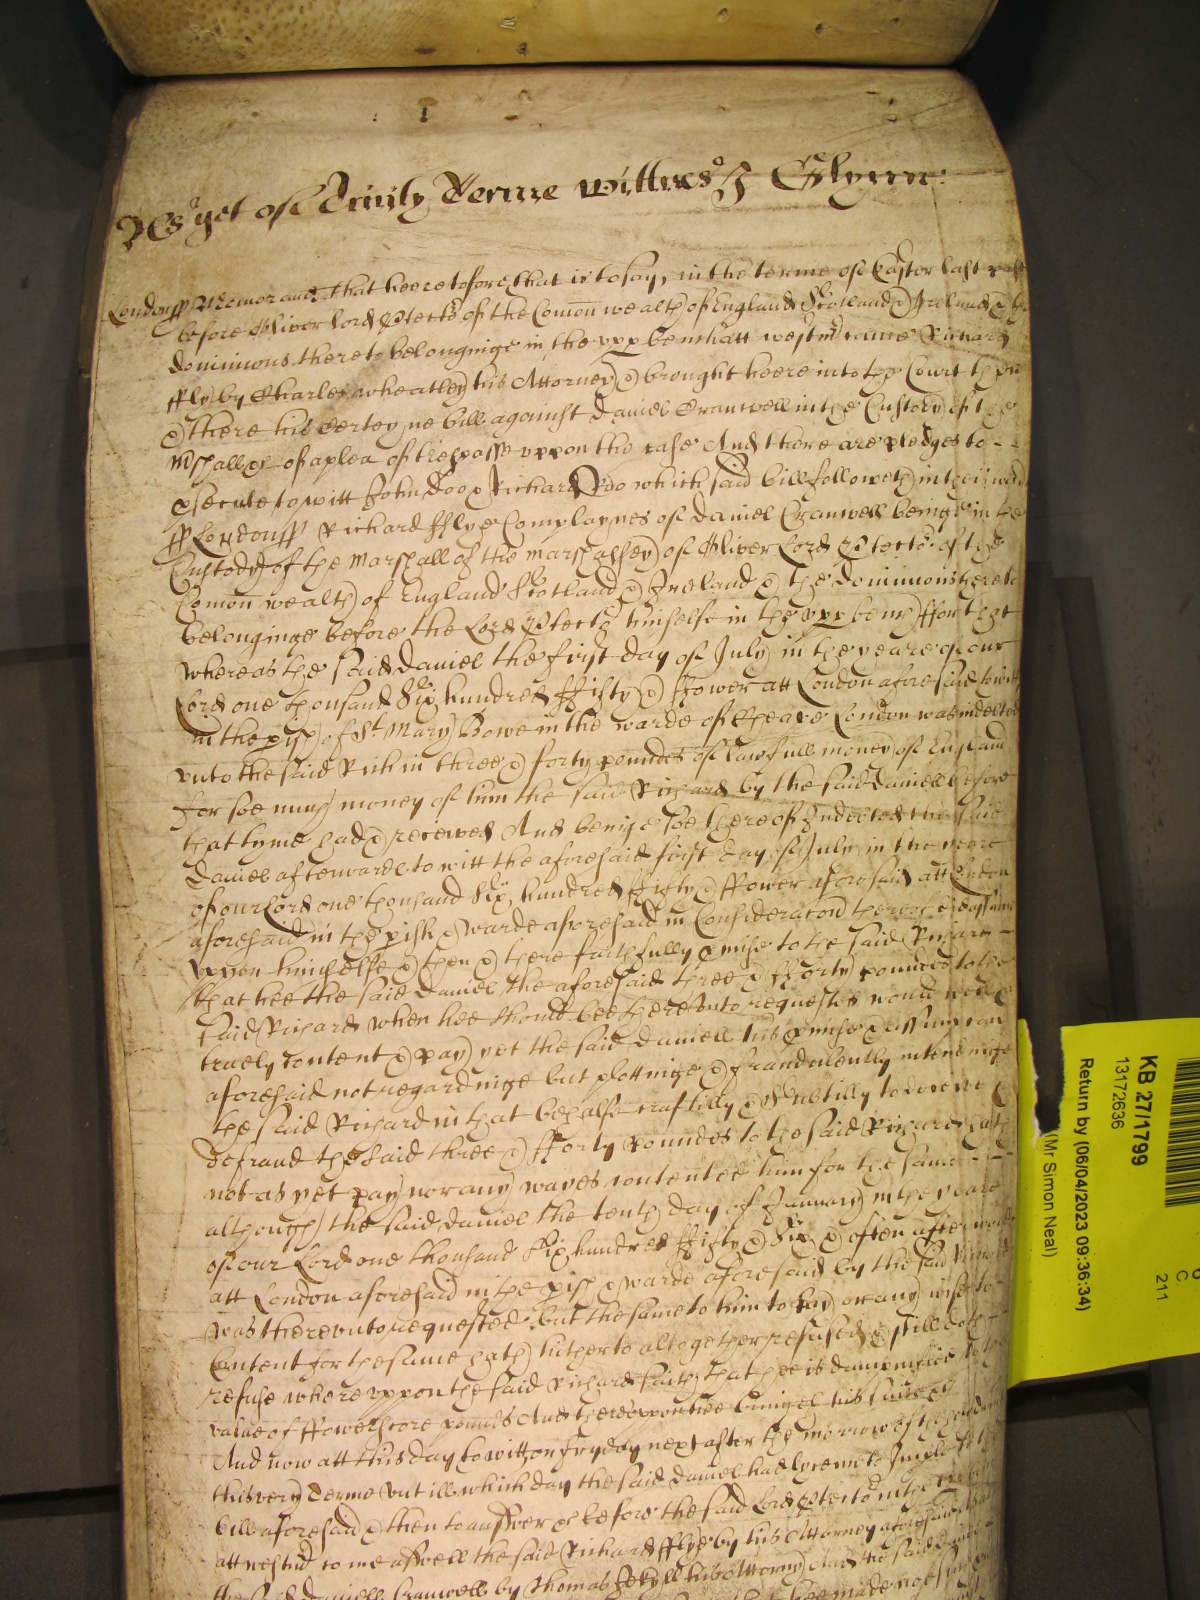 As yet of Trinity Terme Wittnes J Glynn:
London ss Memorand That heeretofore that is to say, in the terme of Easter last past
before Oliver Lord Ptector of the Comon wealth of England Scotland & Ireland & the
dominions thereto belonginge in the vpp bench att westmr came Richard
fflye by Charles wheatley his Attorney & brought heere into the Court then
& there his Certeyne bill against Daniel Cranwell in the Custody of the
Mshall &c of a plea of trespasse vppon the case And there are pledges to
psecute to witt John Doo & Richard Roo which said bill followeth in theis words
ss London ss Richard fflye Complaynes of Daniel Cranwell beinge in the
Custody of the Marshall of the Marshalsey of Oliver Lord Ptector of the
Comon wealth of England Scotland & Ireland & the dominions thereto
belonginge before the Lord Ptector himselfe in the vpp bench ffor that
whereas the said Daniel the first day of July in the yeare of our
Lord one thousand Six hundred ffifty & ffower att London aforesaid to witt
in the pish of St Mary Bowe in the warde of Cheape London was indebted
vnto the said Rich in three & forty poundes of lawfull money of England
for soe much money of him the said Richard by the said Daniell before
that tyme had & received And beinge soe thereof Indebted the said
Daniel afterwards to witt the aforesaid first day of July in the yeare
of our Lord one thousand Six hundred ffifty & ffower aforesaid att London
aforesaid in the pish & warde aforesaid in Consideracon thereof did assume
vppon himselfe & then & there faithfully pmise to the said Richard
that hee the said Daniel the aforesaid three & fforty poundes to the
said Richard when hee should bee therevnto requested would well &
truely content & pay yet the said Daniell his pmise & assumpcon
aforesaid not regardinge but plottinge & fraudulently intendinge
the said Richard in that behalfe craftily & subtilly to deceive &
defraud the said three & fforty poundes to the said Richard hath
not as yet pay nor any wayes contented him for the same
although the said Daniel the tenth day of January in the yeare
of our Lord one thousand Six hundred ffifty & Six & often afterwards
att London aforesaid in the pish & warde aforesaid by the said Richard
was therevnto requested but the same to him to pay or any wise to
Content for the same hath hitherto altogether refused & still doth
refuse wherevppon the said Richard saith that hee is dampnified to the
value of ffowerscore pounds And therevppon hee bringeth his suite &c
And now att this day to witt on fryday next after the morrow of the holy
this very Terme vntill which day the said Daniel had lycence to Imple to the
bill aforesaid & then to answer &c before the said Lord Ptector
att westmr come aswell the said Richard fflye by his Attorney aforesaid
the said Daniell Cranwell by Thomas Jekyll his Attorny And the said
KB 27/1799
13172636
Return by (06/04/2023 09:36:34)
(Mr Simon Neal)
C
211